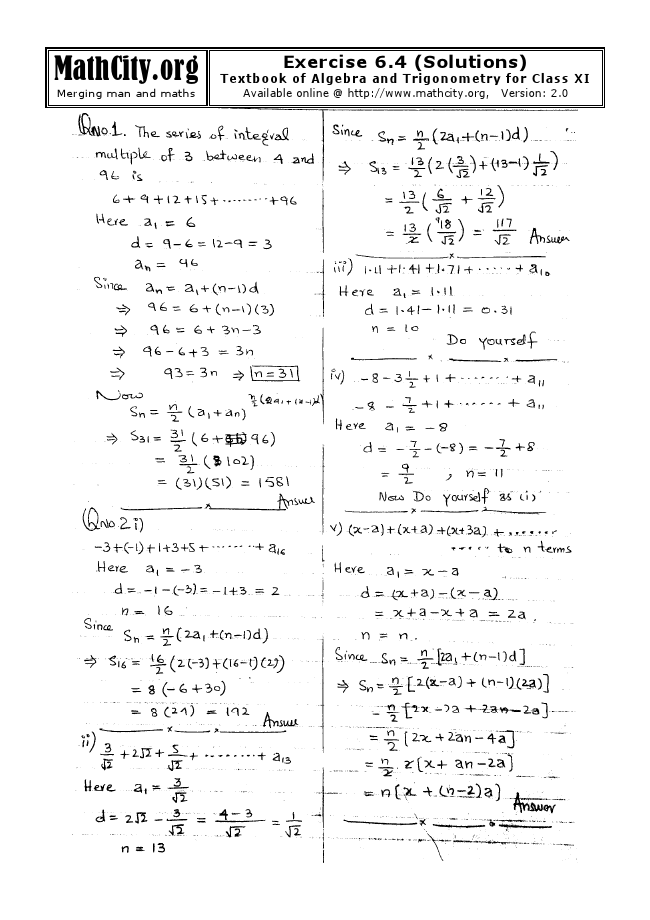 MathCity.org
Merging man and maths
Exercise 6.4 (Solutions)
Textbook of Algebra and Trigonometry for Class XI
Available online @ http://www.mathcity.org, Version: 2.0
QNo 1. The series of integral
multiple of 3 between 4 and
96 is
6 + 9 + 12 + 15 + ········ + 96
Here a₁ = 6
d = 9 - 6 = 12 - 9 = 3
aₙ = 96
Since aₙ = a₁ + (n-1)d
⇒ 96 = 6 + (n-1)(3)
⇒ 96 = 6 + 3n - 3
⇒ 96 - 6 + 3 = 3n
⇒ 93 = 3n ⇒ n = 31
Now
Sₙ = n/2 (a₁ + aₙ)
⇒ S₃₁ = 31/2 (6 + 96)
= 31/2 (102)
= (31)(51) = 1581
Answer
QNo 2 i)
-3 + (-1) + 1 + 3 + 5 + ········ + a₁₆
Here a₁ = -3
d = -1 - (-3) = -1 + 3 = 2
n = 16
Since
Sₙ = n/2 (2a₁ + (n-1)d)
⇒ S₁₆ = 16/2 (2(-3) + (16-1)(2))
= 8 (-6 + 30)
= 8 (24) = 192 Answer
ii) 3/√2 + 2√2 + 5/√2 + ········ + a₁₃
Here a₁ = 3/√2
d = 2√2 - 3/√2 = 4-3/√2 = 1/√2
n = 13
Since Sₙ = n/2 (2a₁ + (n-1)d)
⇒ S₁₃ = 13/2 (2(3/√2) + (13-1) 1/√2)
= 13/2 (6/√2 + 12/√2)
= 13/2 (18/√2) = 117/√2 Answer
iii) 1.11 + 1.41 + 1.71 + ······ + a₁₀
Here a₁ = 1.11
d = 1.41 - 1.11 = 0.31
n = 10
Do yourself
iv) -8 - 3 1/2 + 1 + ········ + a₁₁
-8 - 7/2 + 1 + ······ + a₁₁
Here a₁ = -8
d = -7/2 - (-8) = -7/2 + 8
= 9/2 ; n = 11
Now Do yourself as (i)
v) (x-a) + (x+a) + (x+3a) + ·······
····· to n terms
Here a₁ = x - a
d = (x+a) - (x-a)
= x + a - x + a = 2a
n = n.
Since Sₙ = n/2 [2a₁ + (n-1)d]
⇒ Sₙ = n/2 [2(x-a) + (n-1)(2a)]
= n/2 [2x - 2a + 2an - 2a]
= n/2 [2x + 2an - 4a]
= n/2 · 2 [x + an - 2a]
= n [x + (n-2)a] Answer